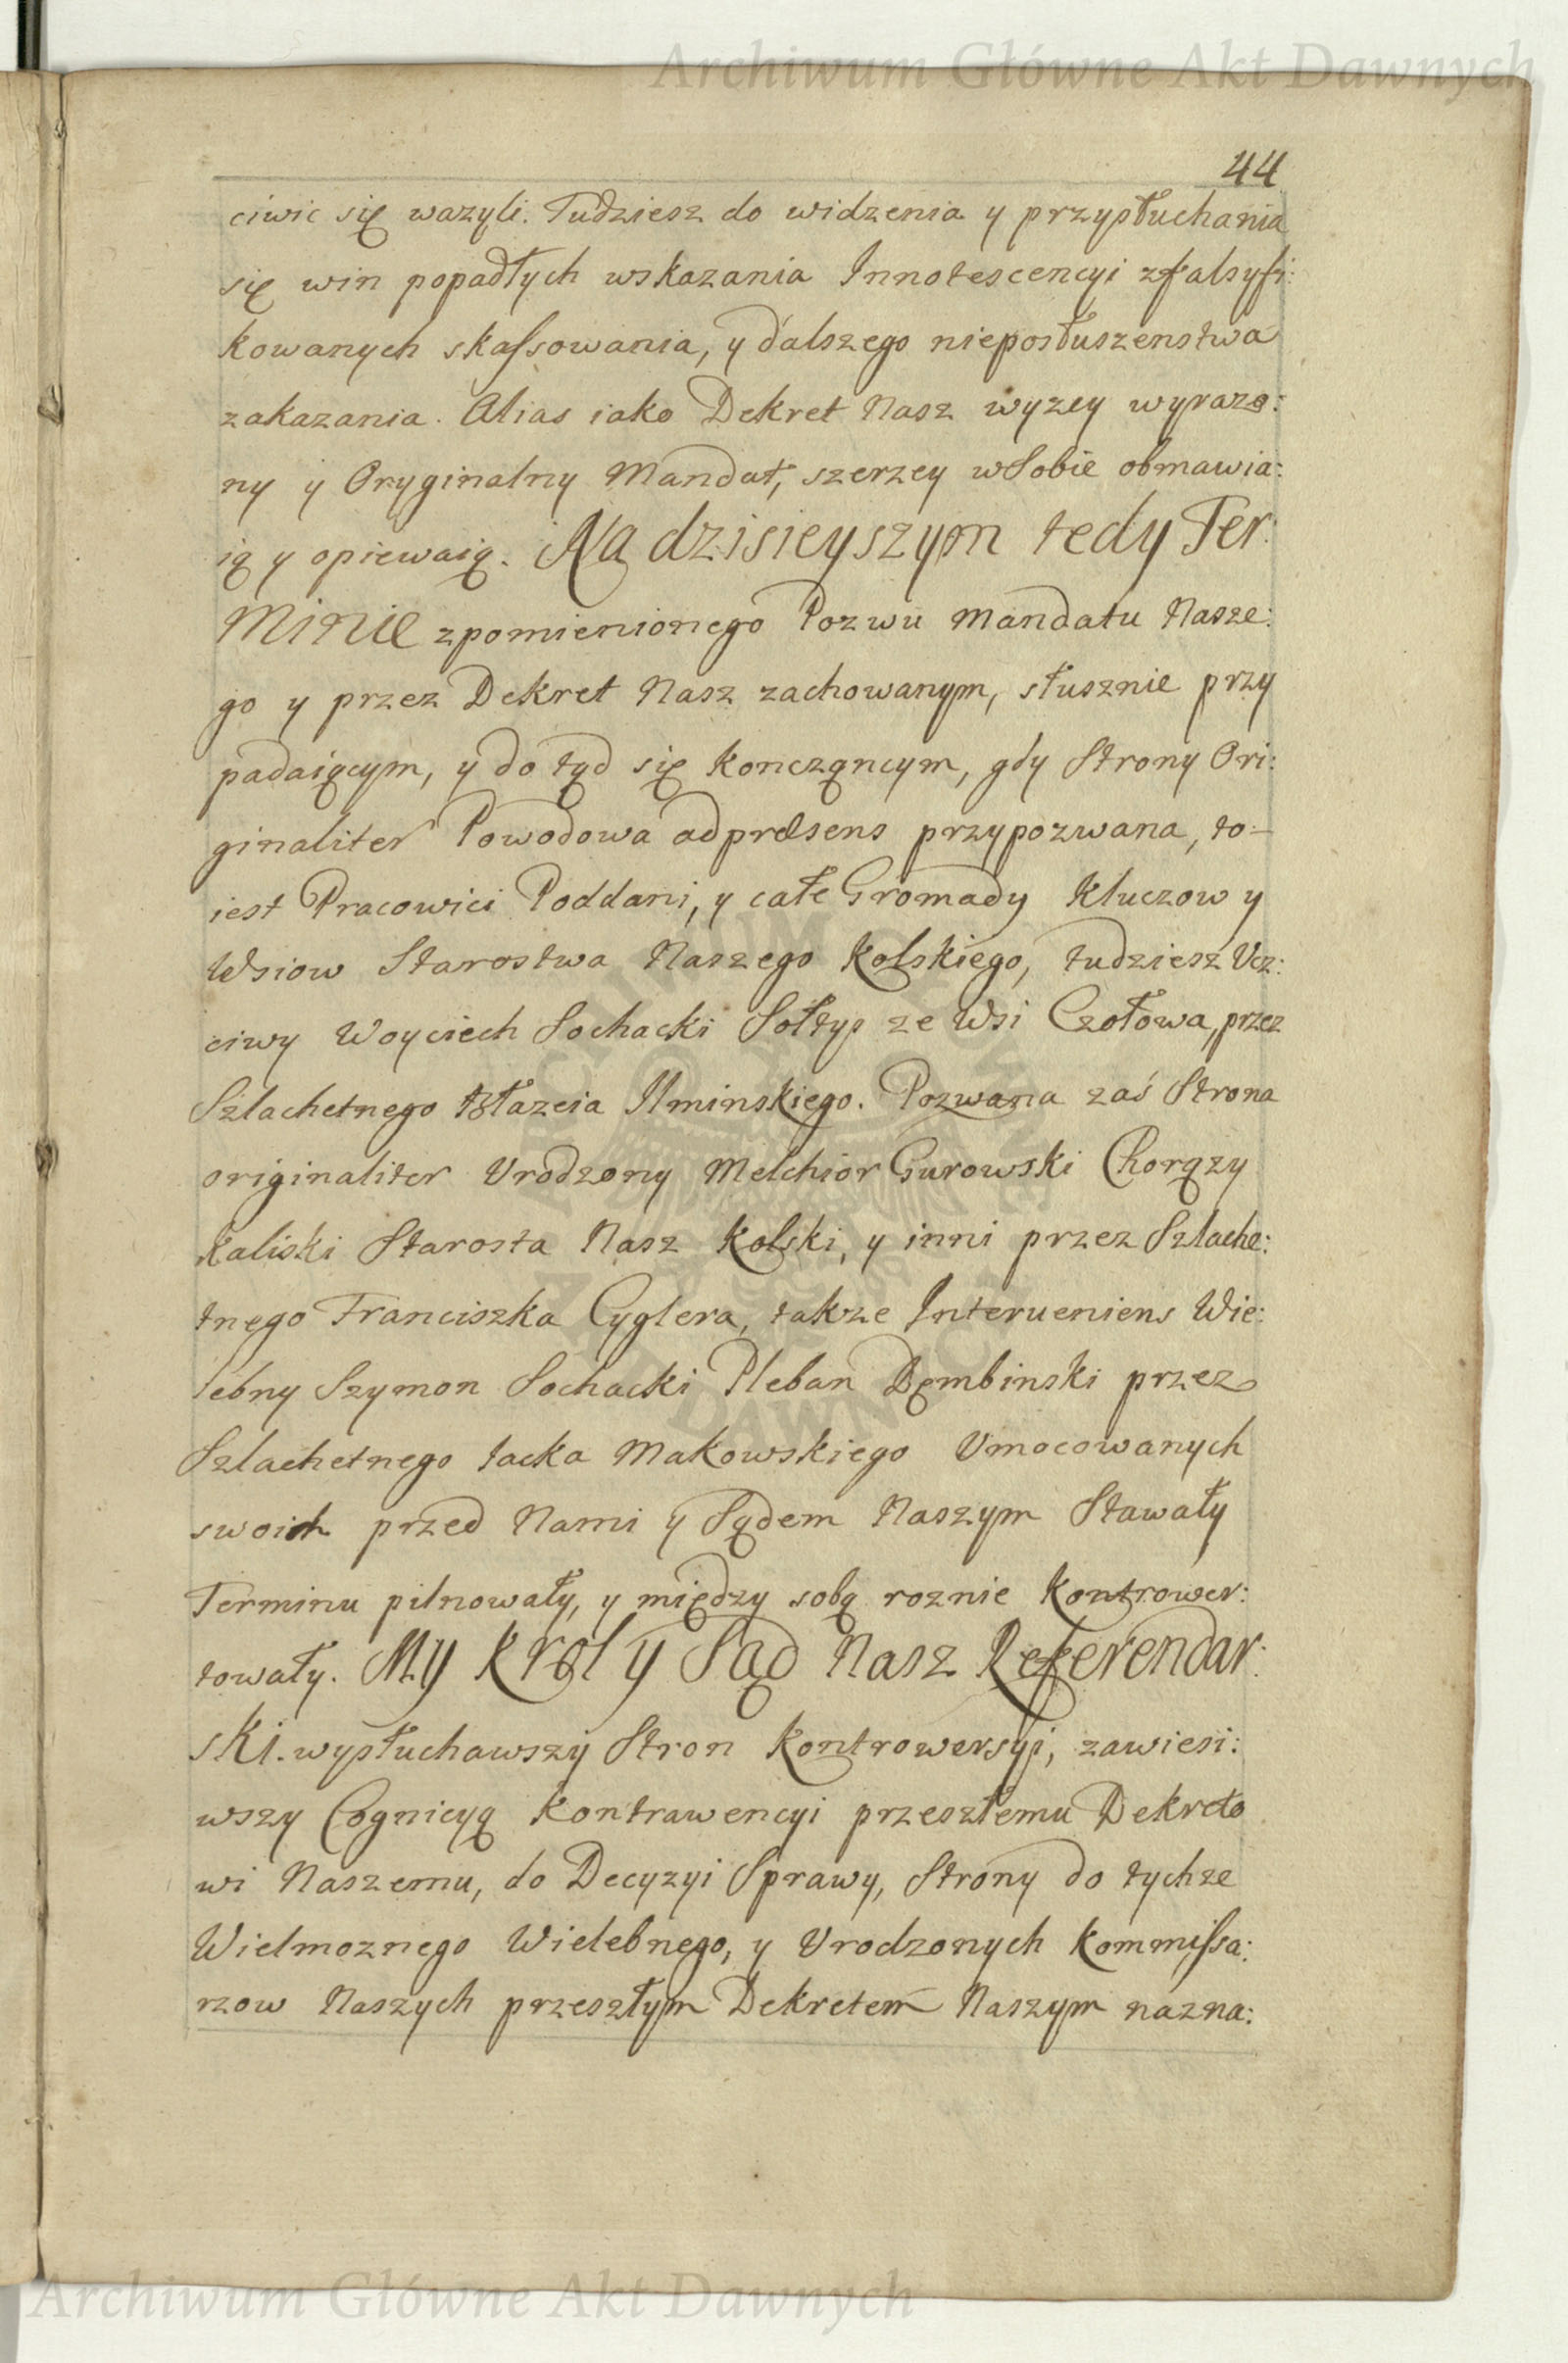 Archiwum Główne Akt Dawnych
44
ciwic się wazyli. Tudziesz do widzenia y przysłuchania
się win popadłych wskazania Innotescencyi zfalsyfi:
kowanych skassowania, y dalszego nieposłuszenstwa
zakazania. Alias iako Dekret Nasz wyzey wyrazo:
ny y Oryginalny Mandat, szerzey wSobie obmawia:
ią y opiewaią. Na dzisieyszym tedy Ter:
Minie zpomienionego Pozwu Mandatu Nasze:
go y przez Dekret Nasz zachowanym, słusznie przy
padaiącym, y do tąd się konczqncym, gdy Strony Ori:
ginaliter Powodowa adpræsens przypozwana, to-
iest Pracowici Poddani, y całe Gromady Kluczow y
Wsiow Starostwa Naszego Kolskiego, tudziesz Vcz:
ciwy Woyciech Sochacki Sołtys ze Wsi Czołowa, przez
Szlachetnego Błazeia Ilminskiego. Pozwana zaś Strona
originaliter Vrodzony Melchior Gurowski Chorązy
Kaliski Starosta Nasz Kolski, y inni przez Szlache:
tnego Franciszka Cyglera, takze Interueniens Wie:
lebny Szymon Sochacki Pleban Dęmbinski przez
Szlachetnego Iacka Makowskiego Vmocowanych
swoich przed Nami y Sądem Naszym Stawały
Terminu pilnowały, y między sobą roznie Kontrower:
towały. My Krol y Sąd Nasz Referendar:
ski. wysłuchawszy Stron Kontrowersyi, zawiesi:
wszy Cognicyą Kontrawencyi przeszłemu Dekreto
wi Naszemu, do Decyzyi Sprawy, Strony do tychze
Wielmoznego Wielebnego, y Vrodzonych Kommissa:
rzow Naszych przeszłym Dekretem Naszym nazna:
Archiwum Główne Akt Dawnych